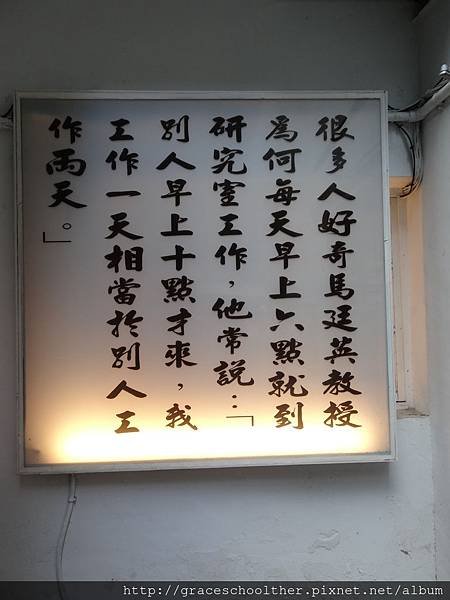 很多人好奇馬廷英教授
為何每天早上六點就到
研究室工作，他常說：「
別人早上十點才來，我
工作一天相當於別人工
作兩天。」
http://graceschoolther.pixnet.net/album